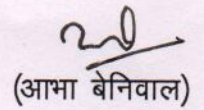 (आभा बेनिवाल)